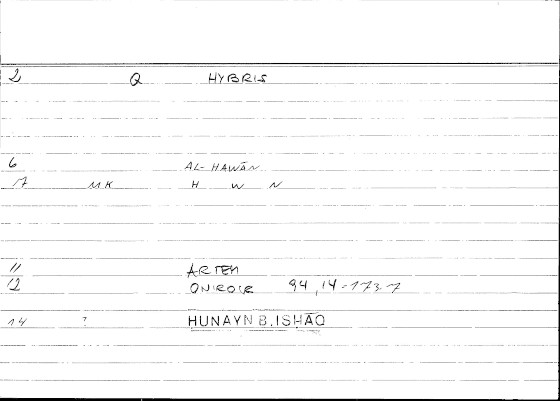 2 Q HYBRIS
6 AL-HAWĀN
17 MK H W N
11 ARTEM
12 ONIROCR 94,14-173-7
14 ? HUNAYN B. ISHĀQ